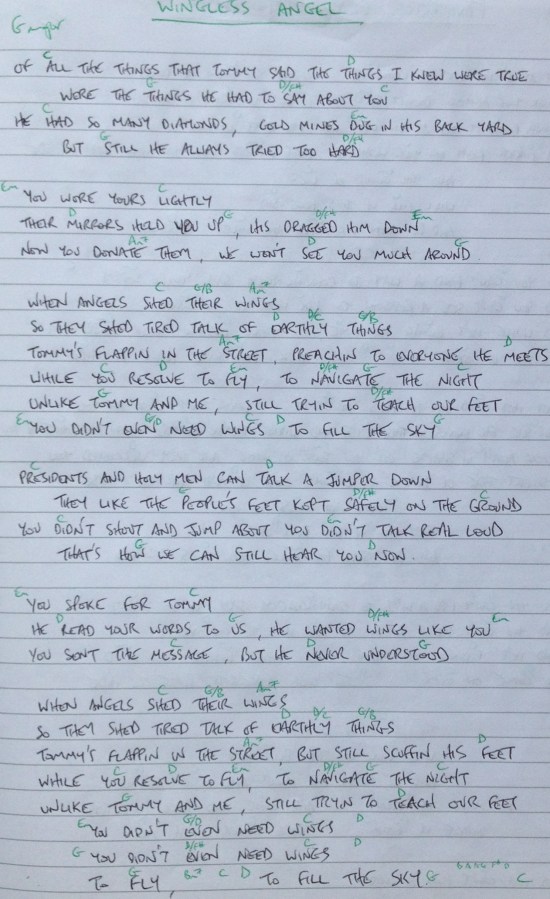 WINGLESS ANGEL
G major
C D
OF ALL THE THINGS THAT TOMMY SAID THE THINGS I KNEW WERE TRUE
G D/F# C
WERE THE THINGS HE HAD TO SAY ABOUT YOU
C Em
HE HAD SO MANY DIAMONDS, GOLD MINES DUG IN HIS BACK YARD
G D/F#
BUT STILL HE ALWAYS TRIED TOO HARD
Em C
YOU WORE YOURS LIGHTLY
D G D/F# Em
THEIR MIRRORS HELD YOU UP, HIS DRAGGED HIM DOWN
Am7 D G
NOW YOU DONATE THEM, WE WON'T SEE YOU MUCH AROUND
C G/B Am7
WHEN ANGELS SHED THEIR WINGS
D D/C G/B
SO THEY SHED TIRED TALK OF EARTHLY THINGS
Am7 D
TOMMY'S FLAPPIN IN THE STREET, PREACHIN TO EVERYONE HE MEETS
C D Em D/F# G C
WHILE YOU RESOLVE TO FLY, TO NAVIGATE THE NIGHT
G D/F#
UNLIKE TOMMY AND ME, STILL TRYIN TO TEACH OUR FEET
Em G/D C D G
YOU DIDN'T EVEN NEED WINGS TO FILL THE SKY
C D
PRESIDENTS AND HOLY MEN CAN TALK A JUMPER DOWN
G D/F# C
THEY LIKE THE PEOPLE'S FEET KEPT SAFELY ON THE GROUND
C Em
YOU DIDN'T SHOUT AND JUMP ABOUT YOU DIDN'T TALK REAL LOUD
G D
THAT'S HOW WE CAN STILL HEAR YOU NOW.
Em C
YOU SPOKE FOR TOMMY
D G D/F# Em
HE READ YOUR WORDS TO US, HE WANTED WINGS LIKE YOU
C D G
YOU SENT THE MESSAGE, BUT HE NEVER UNDERSTOOD
C G/B Am7
WHEN ANGELS SHED THEIR WINGS
D D/C G/B
SO THEY SHED TIRED TALK OF EARTHLY THINGS
Am7 D
TOMMY'S FLAPPIN IN THE STREET, BUT STILL SCUFFIN HIS FEET
C D Em D/F# G C
WHILE YOU RESOLVE TO FLY, TO NAVIGATE THE NIGHT
G D
UNLIKE TOMMY AND ME, STILL TRYIN TO TEACH OUR FEET
Em G/D C D
YOU DIDN'T EVEN NEED WINGS
G D/F# C D
YOU DIDN'T EVEN NEED WINGS
G C D G C
TO FLY, TO FILL THE SKY